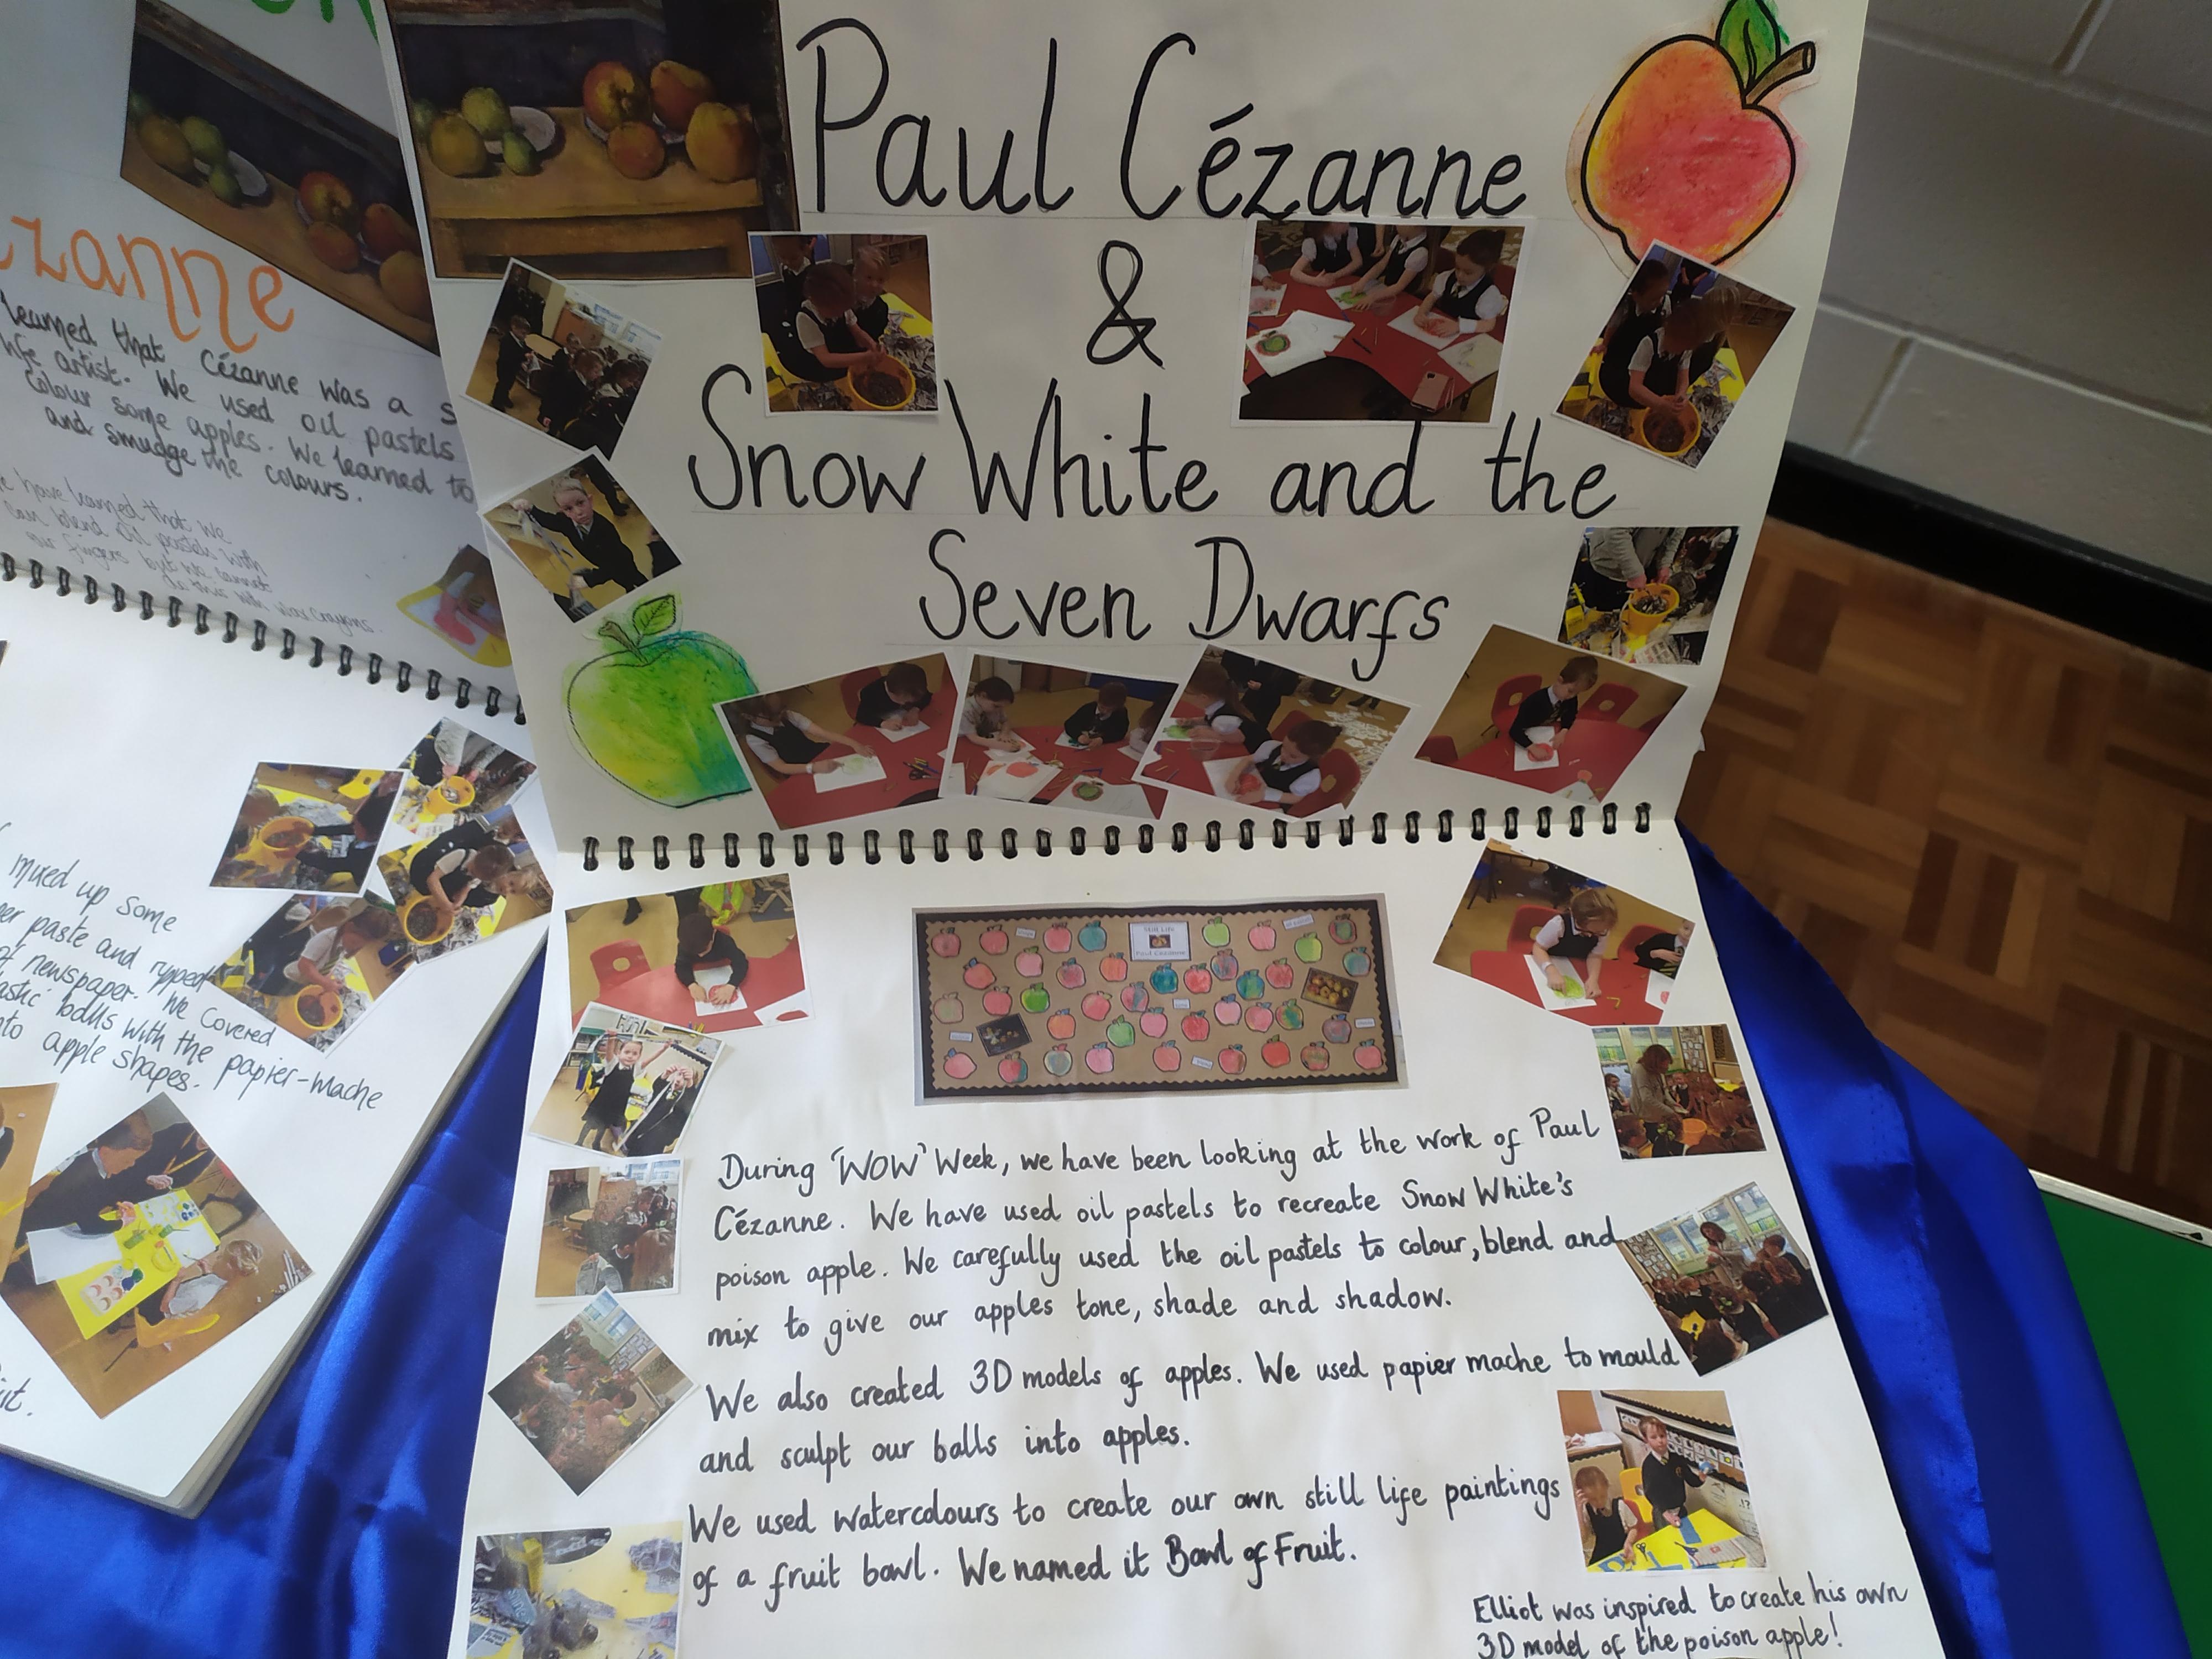 zanne
learned that Cézanne was a s
life artist. We used oil pastels
Colour some apples. We learned to
and smudge the colours.
have learned that we
can blend oil pastels with
our fingers but we cannot
do this with wax crayons.
mixed up some
paste and ripped
of newspaper. We covered
balls with the papier-mache
into apple shapes.
Paul Cézanne
&
Snow White and the
Seven Dwarfs
Still Life
Paul Cezanne
During 'WOW' Week, we have been looking at the work of Paul
Cézanne. We have used oil pastels to recreate Snow White's
poison apple. We carefully used the oil pastels to colour, blend and
mix to give our apples tone, shade and shadow.
We also created 3D models of apples. We used papier mache to mould
and sculpt our balls into apples.
We used watercolours to create our own still life paintings
of a fruit bowl. We named it Bowl of Fruit.
Elliot was inspired to create his own
3D model of the poison apple!